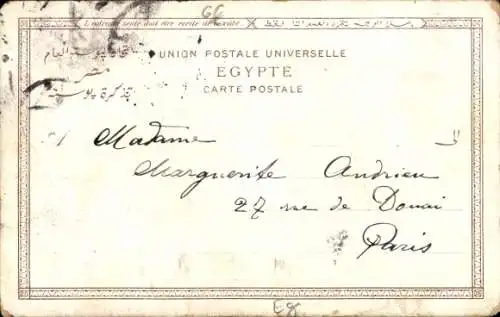 G6
L'adresse seule doit être écrite de ce côté
UNION POSTALE UNIVERSELLE
EGYPTE
CARTE POSTALE
مصر
تذكرة بوسته
Madame
Marguerite Andrieu
27 rue de Douai
Paris